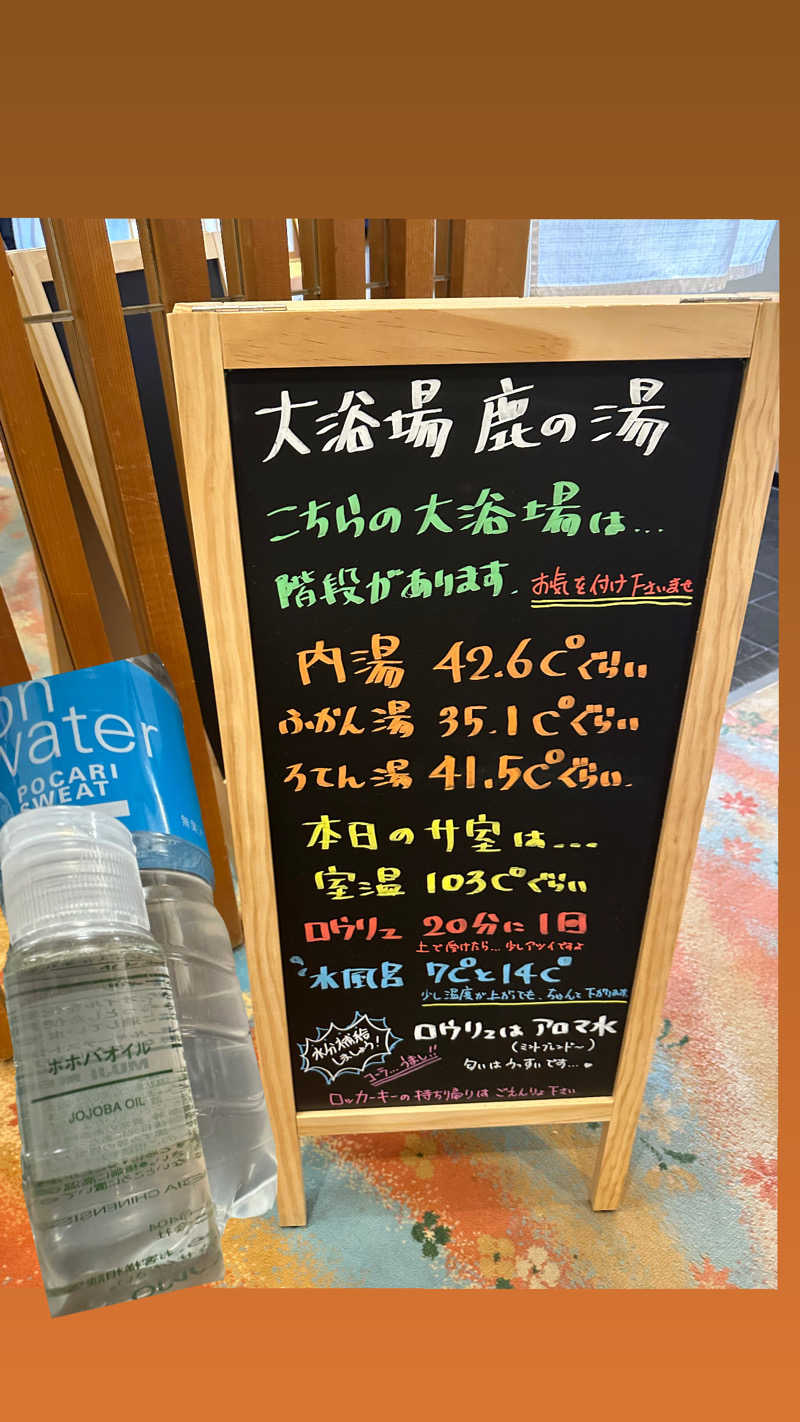 大浴場 鹿の湯
こちらの大浴場は...
階段があります. お気を付け下さいませ
内湯 42.6C°ぐらい
ふかん湯 35.1C°ぐらい
ろてん湯 41.5C°ぐらい.
本日のサ室は...
室温 103C°ぐらい
ロウリュ 20分に1回
上で受けたら... 少しアツイですよ
水風呂 7C°と14C°
少し温度が上がっても、ちゃんと下がります
水分補給
しましょう!
コーラ...うまし!!
ロウリュはアロマ水
(ミントブレンド〜)
匂いはうっすいです...
ロッカーキーの持ち帰りは ごえんりょ下さい
on
water
POCARI
SWEAT
ホホバオイル
MUJI
JOJOBA OIL